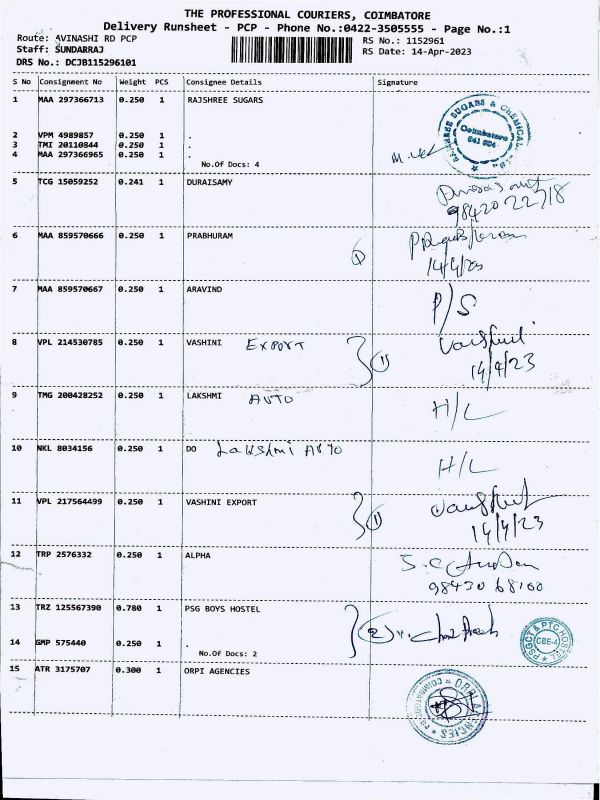 THE PROFESSIONAL COURIERS, COIMBATORE
Delivery Runsheet - PCP - Phone No.:0422-3505555 - Page No.:1
Route: AVINASHI RD PCP RS No.: 1152961
Staff: SUNDARRAJ RS Date: 14-Apr-2023
DRS No.: DCJB115296101
S No Consignment No Weight PCS Consignee Details Signature
1 MAA 297366713 0.250 1 RAJSHREE SUGARS
2 VPM 4989857 0.250 1 .
3 TMI 20110844 0.250 1 .
4 MAA 297366965 0.250 1 .
No.Of Docs: 4
Coimbatore
641 004
5 TCG 15059252 0.241 1 DURAISAMY
98420 22718
6 MAA 859570666 0.250 1 PRABHURAM
1
14/4/23
7 MAA 859570667 0.250 1 ARAVIND P/S
8 VPL 214530785 0.250 1 VASHINI EXPORT 1
14/4/23
9 TMG 200428252 0.250 1 LAKSHMI AUTO H/L
10 NKL 8034156 0.250 1 DO Lakshmi AUTO H/L
11 VPL 217564499 0.250 1 VASHINI EXPORT 1
14/4/23
12 TRP 2576332 0.250 1 ALPHA
98430 68100
13 TRZ 125567390 0.780 1 PSG BOYS HOSTEL 2
CBE-4
14 GMP 575440 0.250 1 .
No.Of Docs: 2
15 ATR 3175707 0.300 1 ORPI AGENCIES